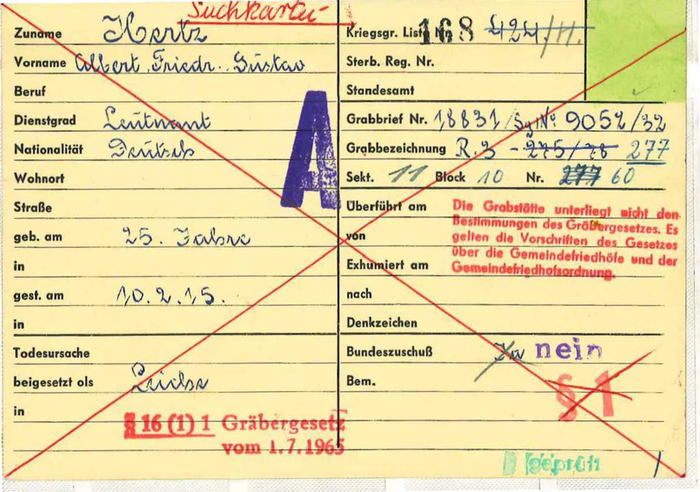 Suchkartei
Zuname Hertz
Vorname Albert Friedr. Gustav
Beruf
Dienstgrad Leutnant
Nationalität Deutsch
Wohnort
Straße
geb. am 25. Jahre
in
gest. am 10.2.15.
in
Todesursache
beigesetzt als Leiche
in
§ 16 (1) 1 Gräbergesetz
vom 1.7.1965
A
Kriegsgr. Liste Nr. 168 424/11.
Sterb. Reg. Nr.
Standesamt
Grabbrief Nr. 18831 / 9052/32
Grabbezeichnung R.3 - 275/78 277
Sekt. 11 Block 10 Nr. 277 60
Überführt am
von
Exhumiert am
nach
Denkzeichen
Bundeszuschuß Ja nein
Bem.
Die Grabstätte unterliegt nicht den
Bestimmungen des Gräbergesetzes. Es
gelten die Vorschriften des Gesetzes
über die Gemeindefriedhöfe und der
Gemeindefriedhofsordnung.
§ 1
geprüft